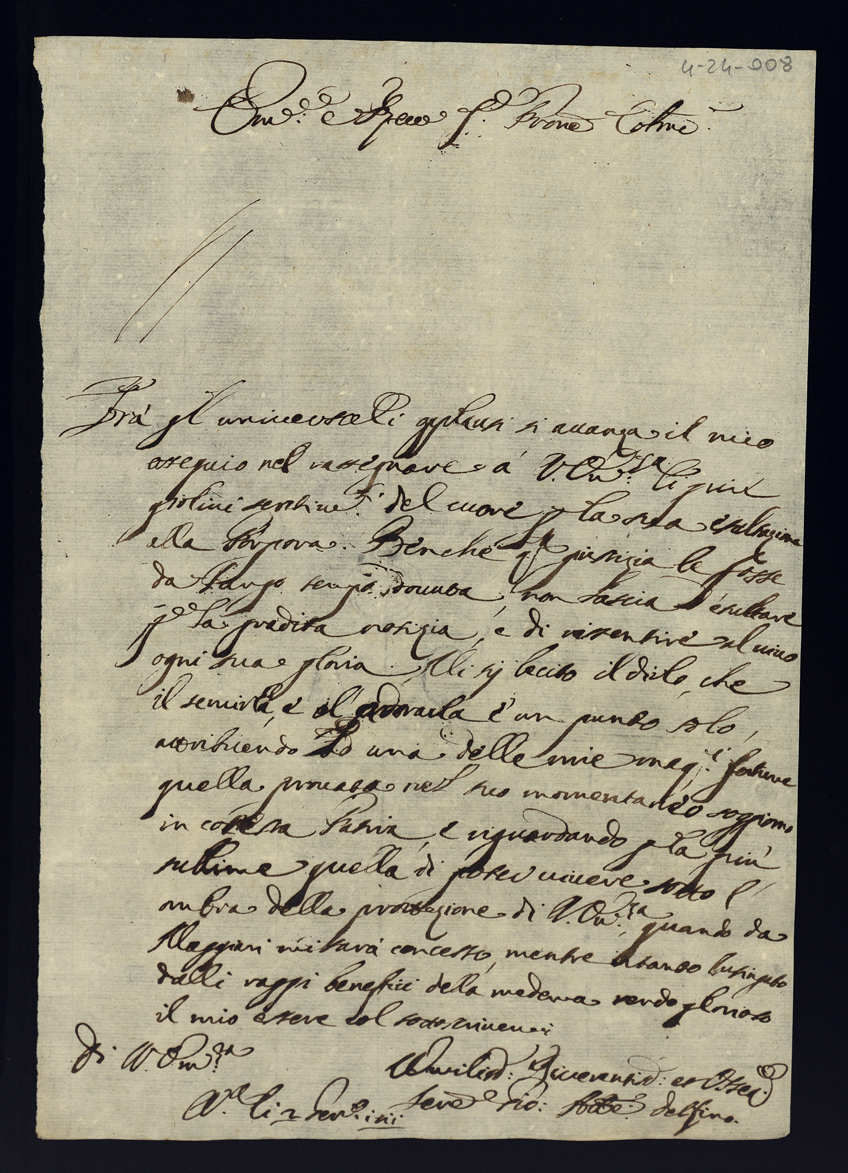 4-24-008
Em.mo e Sig.re Prone Colmo
Frà gl'universali applausi si auanza il mio
ossequio nel rassegnare à V. Em.za li più
giolivi sentim.ti del cuore p la sua esaltazione
alla Porpora. Benche q giustizia le fosse
da lungo tempo douuta, non lascia d'esultare
p la gradita notizia, e di risentire al uiuo
ogni sua gloria. Mi sij lecito il dirlo, che
il seruirla, e l'adorarla è un punto solo,
attribuendo ad una delle mie magg.ri fortune
quella prouata nel suo momentaneo soggiorno
in cotesta Patria, e riguardando p la più
sublime quella di poter uiuere sotto l'
ombra della protezione di V. Em.za, quando da
mi sarà concesso, mentre intanto lusingato
dalli raggi benefici della medema rendo glorioso
il mio essere col sottoscriuermi
Di V. Em.za
Vmiliss: Riuerentiss: et
Ser.e Gio: Delfino.